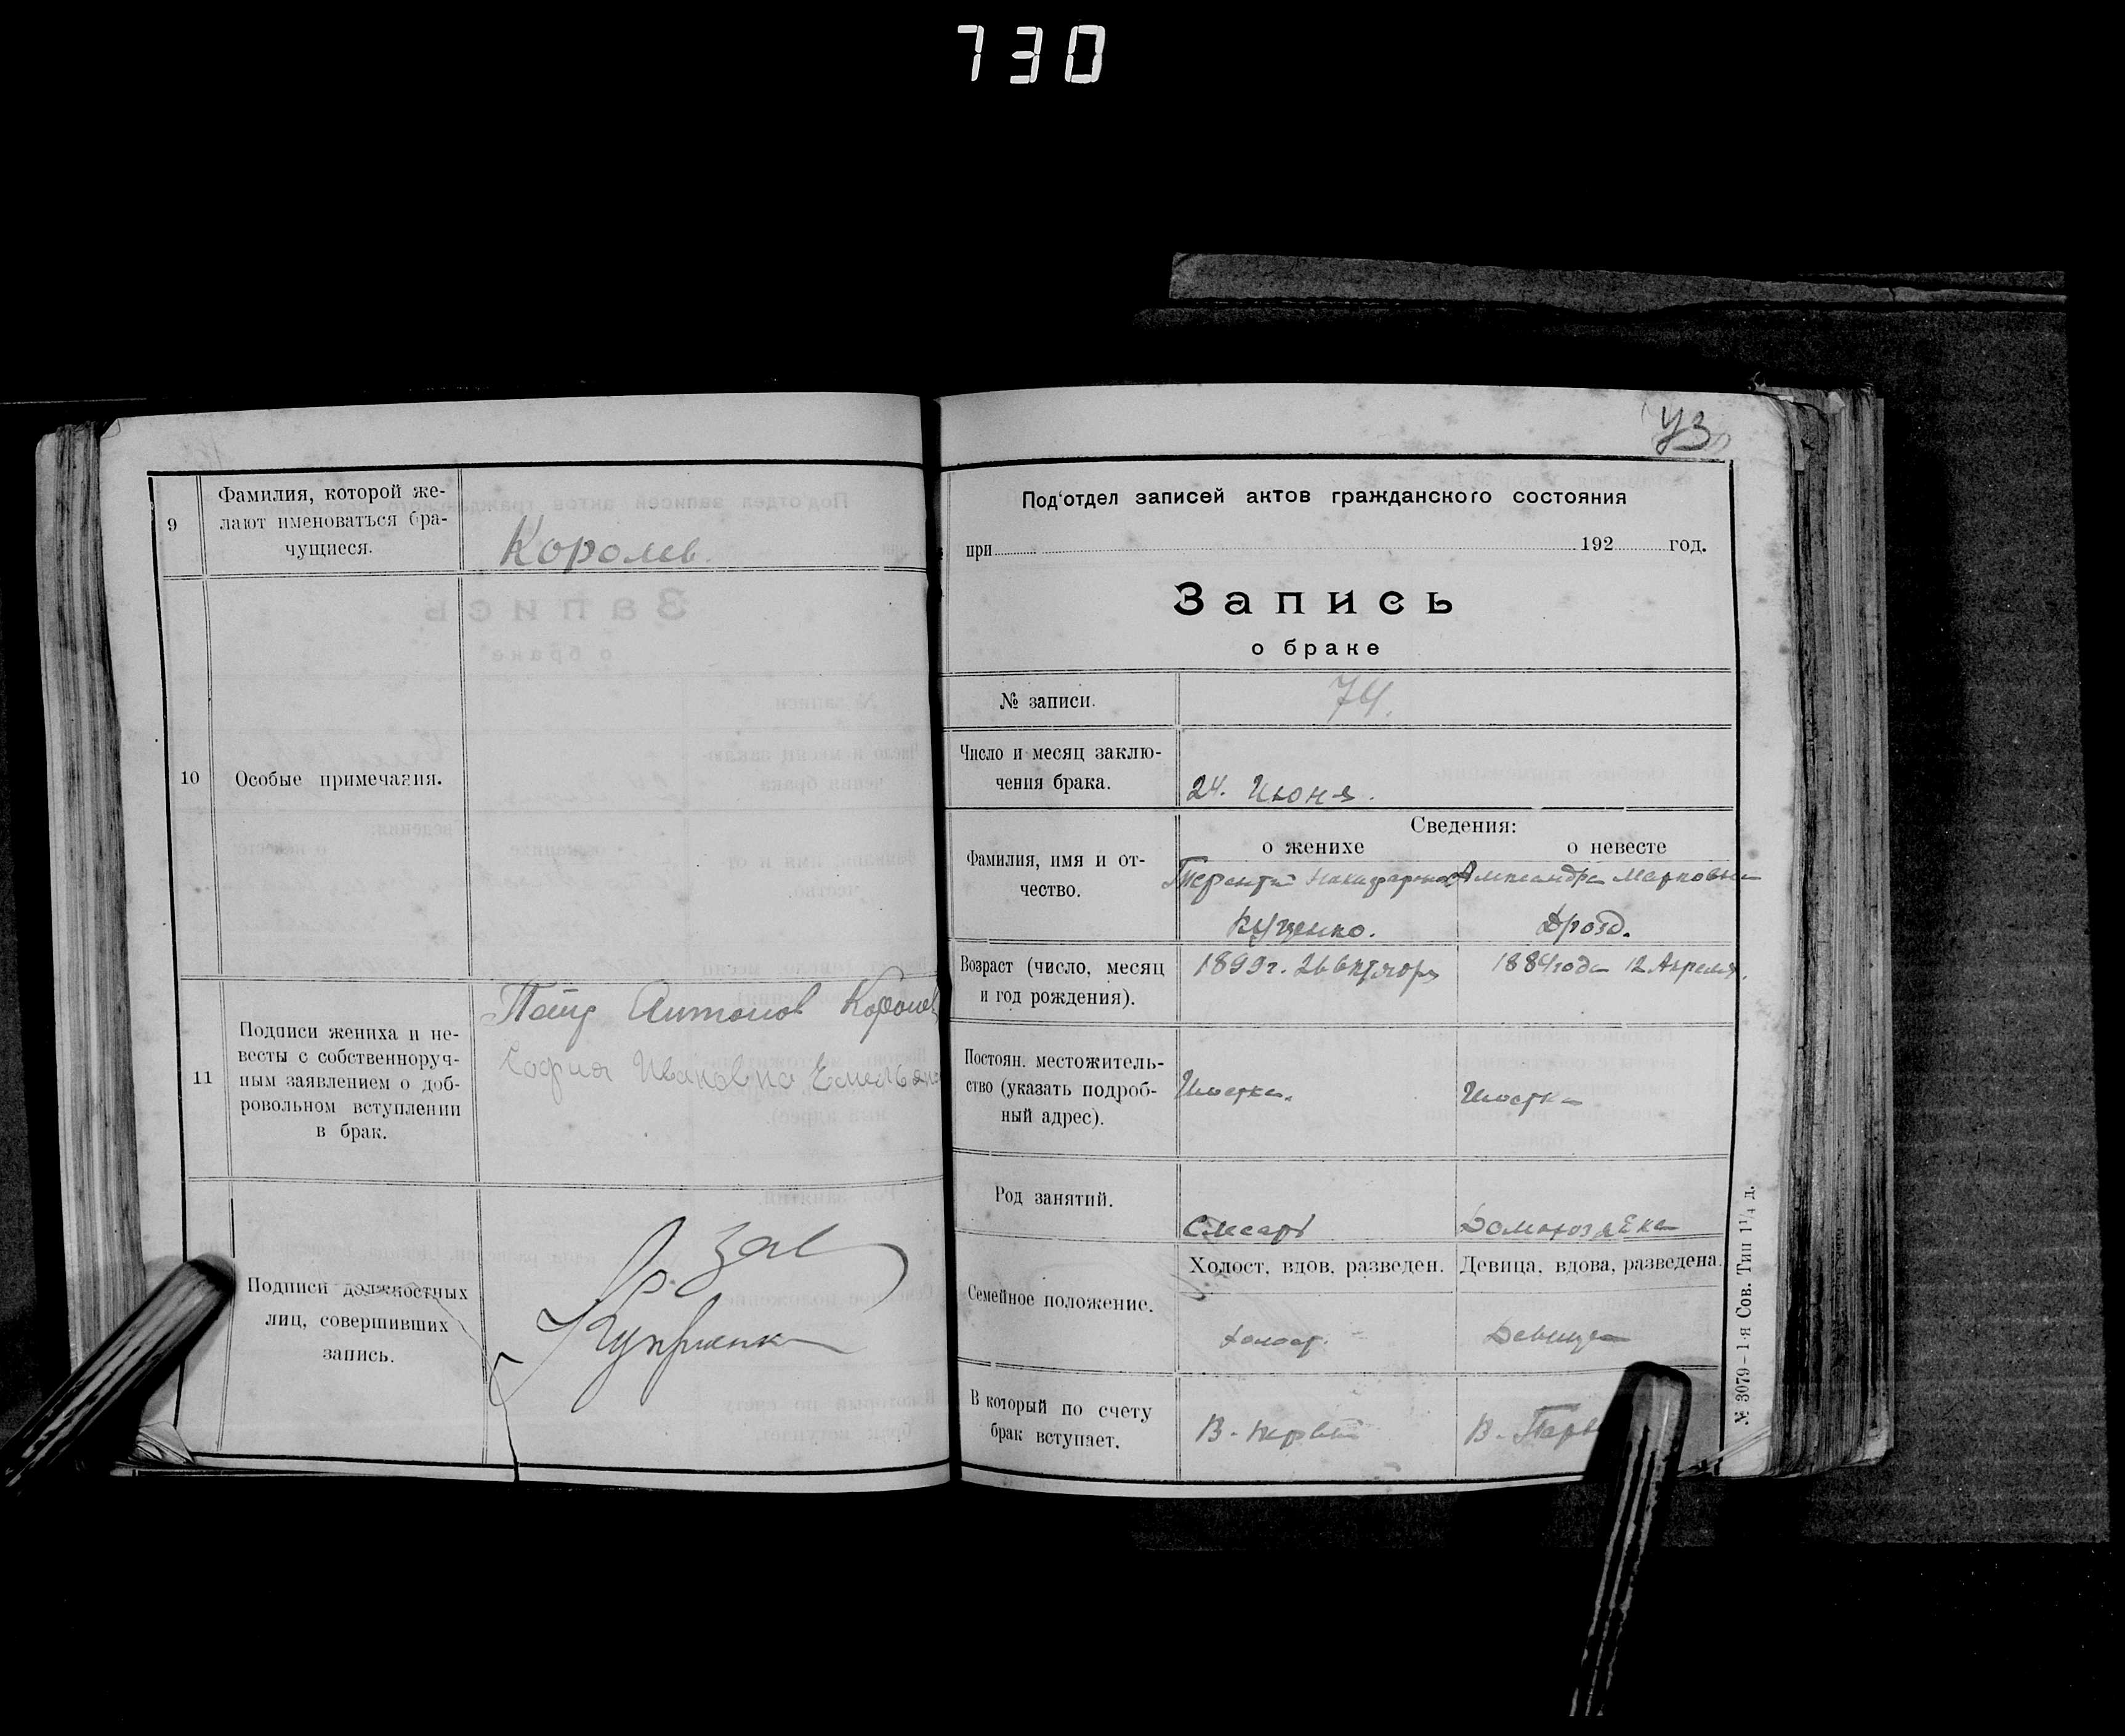 730
9
Фамилия, которой же-
лают именоваться бра-
чущиеся.
Королев.
10
Особые примечания.
11
Подписи жениха и не-
весты с собственноруч-
ным заявлением о доб-
ровольном вступлении
в брак.
Антонов Королев
София Ивановна
Подписи должностных
лиц, совершивших
запись.
Зав
Под'отдел записей актов гражданского состояния
при 192 год.
Запись
о браке
№ записи.
74.
Число и месяц заклю-
чения брака.
24. Июня.
Сведения:
о женихе
о невесте
Фамилия, имя и от-
чество.
Терентий
Куценко.
Александра Марковна
Дрозд.
Возраст (число, месяц
и год рождения).
1899г. 26 октября
1884 года 12 Апреля.
Постоян. местожитель-
ство (указать подроб-
ный адрес).
Шостка.
Шостка
Род занятий.
Слесарь
Семейное положение.
Холост, вдов, разведен.
Девица, вдова, разведена.
холост.
Девица
В который по счету
брак вступает.
В-первый
В-
№ 3079-1-я Сов. Тип 1¼ д.